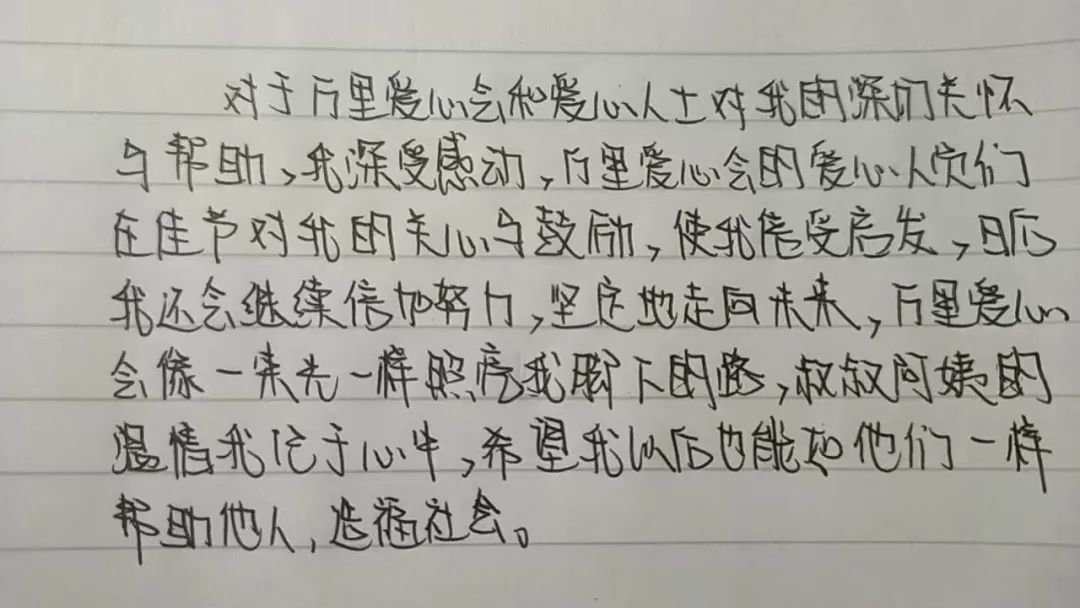 对于万里爱心会和爱心人士对我的深切关怀
与帮助,我深受感动,万里爱心会的爱心人员们
在佳节对我的关心与鼓励,使我倍受启发,日后
我还会继续倍加努力,坚定地走向未来,万里爱心
会像一束光一样照亮我脚下的路,叔叔阿姨的
温情我记于心中,希望我以后也能如他们一样
帮助他人,造福社会。